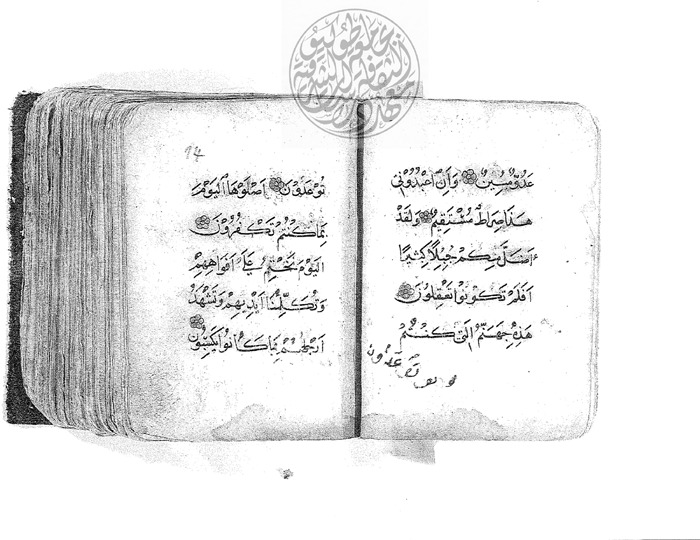 عَدُوٌّ مُبِينٌ وَأَنِ اعْبُدُونِي
هَذَا صِرَاطٌ مُسْتَقِيمٌ وَلَقَدْ
أَضَلَّ مِنْكُمْ جِبِلًّا كَثِيرًا
أَفَلَمْ تَكُونُوا تَعْقِلُونَ
هَذِهِ جَهَنَّمُ الَّتِي كُنْتُمْ
توعدون
14
تُوعَدُونَ اصْلَوْهَا الْيَوْمَ
بِمَا كُنْتُمْ تَكْفُرُونَ
الْيَوْمَ نَخْتِمُ عَلَى أَفْوَاهِهِمْ
وَتُكَلِّمُنَا أَيْدِيهِمْ وَتَشْهَدُ
أَرْجُلُهُمْ بِمَا كَانُوا يَكْسِبُونَ